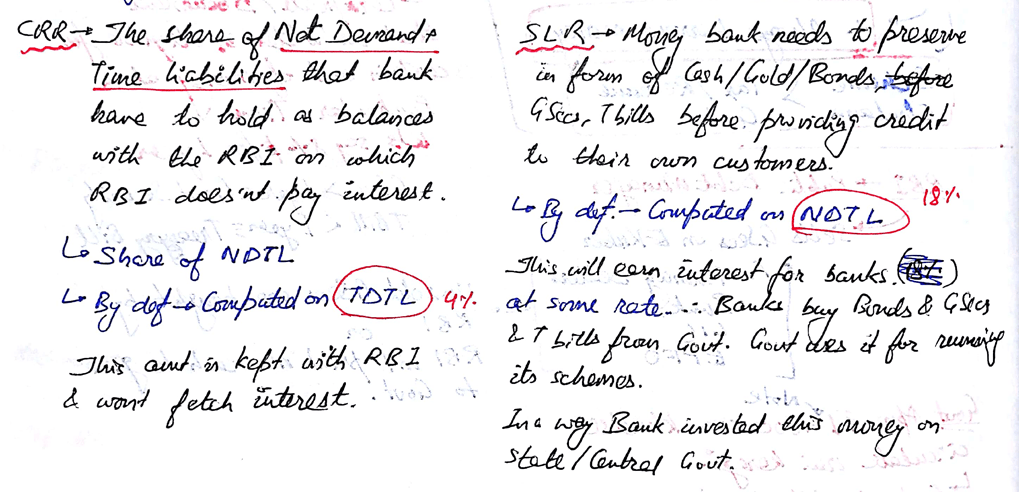 CRR → The share of Net Demand +
Time liabilities that bank
have to hold as balances
with the RBI on which
RBI does'nt pay interest.
↳ Share of NDTL
↳ By def → Computed on TDTL 4%
This amt is kept with RBI
& wont fetch interest.
SLR → Money bank needs to preserve
in form of Cash/Gold/Bonds, before
GSecs, T bills before providing credit
to their own customers.
↳ By def. → Computed on NDTL 18%
This will earn interest for banks. (18%)
at some rate. ∴ Banks buy Bonds & GSecs
& T bills from Govt. Govt does it for running
its schemes.
In a way Bank invested this money on
State/Central Govt.